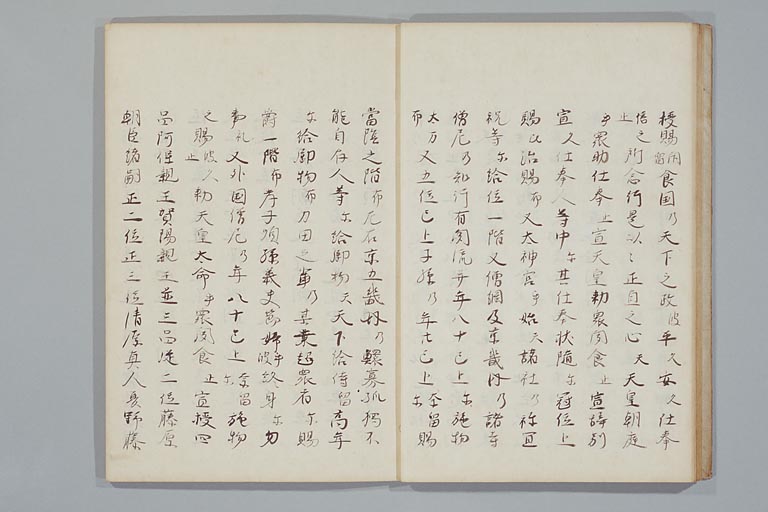 授賜留閇食国乃天下之政波平久安久仕奉
倍之所念行是以正直之心天天皇朝庭
乎衆助仕奉止宣天皇勅衆聞食止宣辞別
宣久仕奉人等中尓其仕奉状随尓冠位上
賜比治賜布又大神宮乎始天諸社乃祢宜
祝等尓給位一階又僧綱及京畿内乃諸寺
僧尼乃知行有聞流并年八十已上尓施物
布又五位已上子孫乃年廿已上尓賜
當蔭之階布左右京五畿内乃鰥寡孤独不
能自存人等尓給御物天天下給侍留高年
尓給御物布力田之輩乃其業超衆者尓賜
爵一階布孝子順孫義夫節婦乎波終身尓勿
事礼又外国僧尼乃年八十已上尓施物
之賜波久勅天皇大命乎衆聞食止宣授四
品阿保親王賀陽親王並三品従二位藤原
朝臣緒嗣正二位正三位清原真人夏野藤